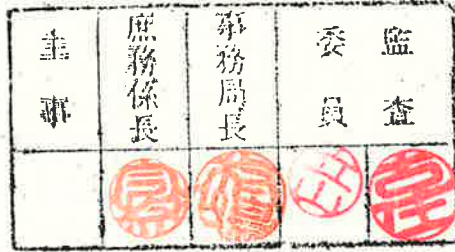 監査
委員
事務局長
庶務係長
主事